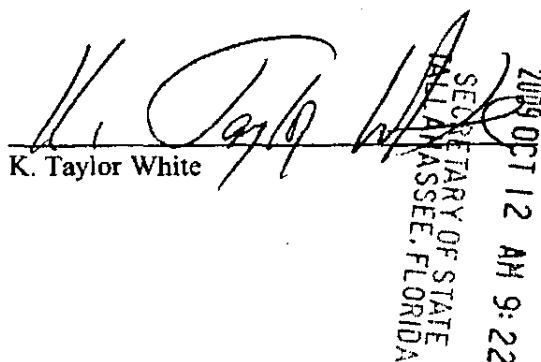 K. Taylor White
K. Taylor White
2009 OCT 12 AM 9:22
SECRETARY OF STATE
TALLAHASSEE, FLORIDA